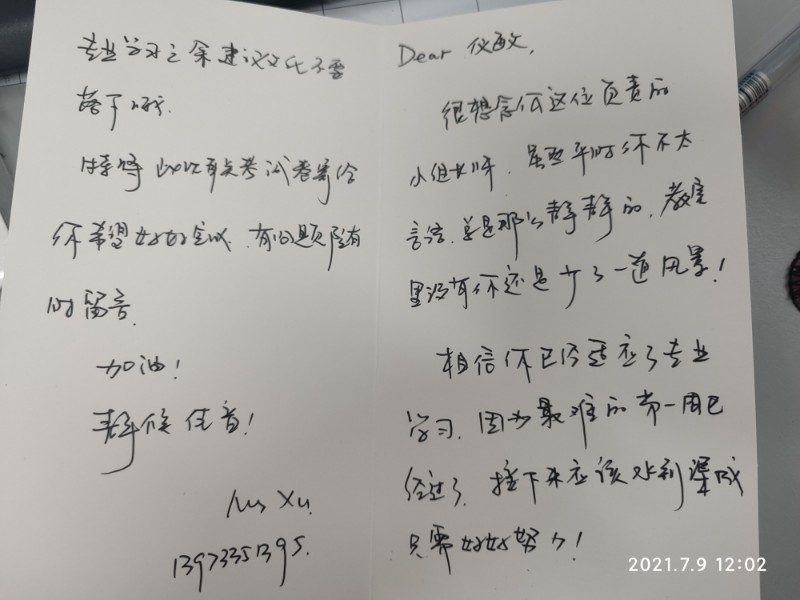 Dear 仪文,
很想念你这位负责的
小组长呀,虽然平时你不太
言语,总是那么静静的,教室
里没有你还是少了一道风景!
相信你已经适应了专业
学习,因为最难的第一周已
经过了,接下来应该水到渠成
只需好好努力!
专业学习之余建议文化不要
落下哦.
特将 此次月考试卷寄给
你希望好好完成,有问题随
时留言.
加油!
静候佳音!
Ms Xu.
13973351395.
2021.7.9 12:02